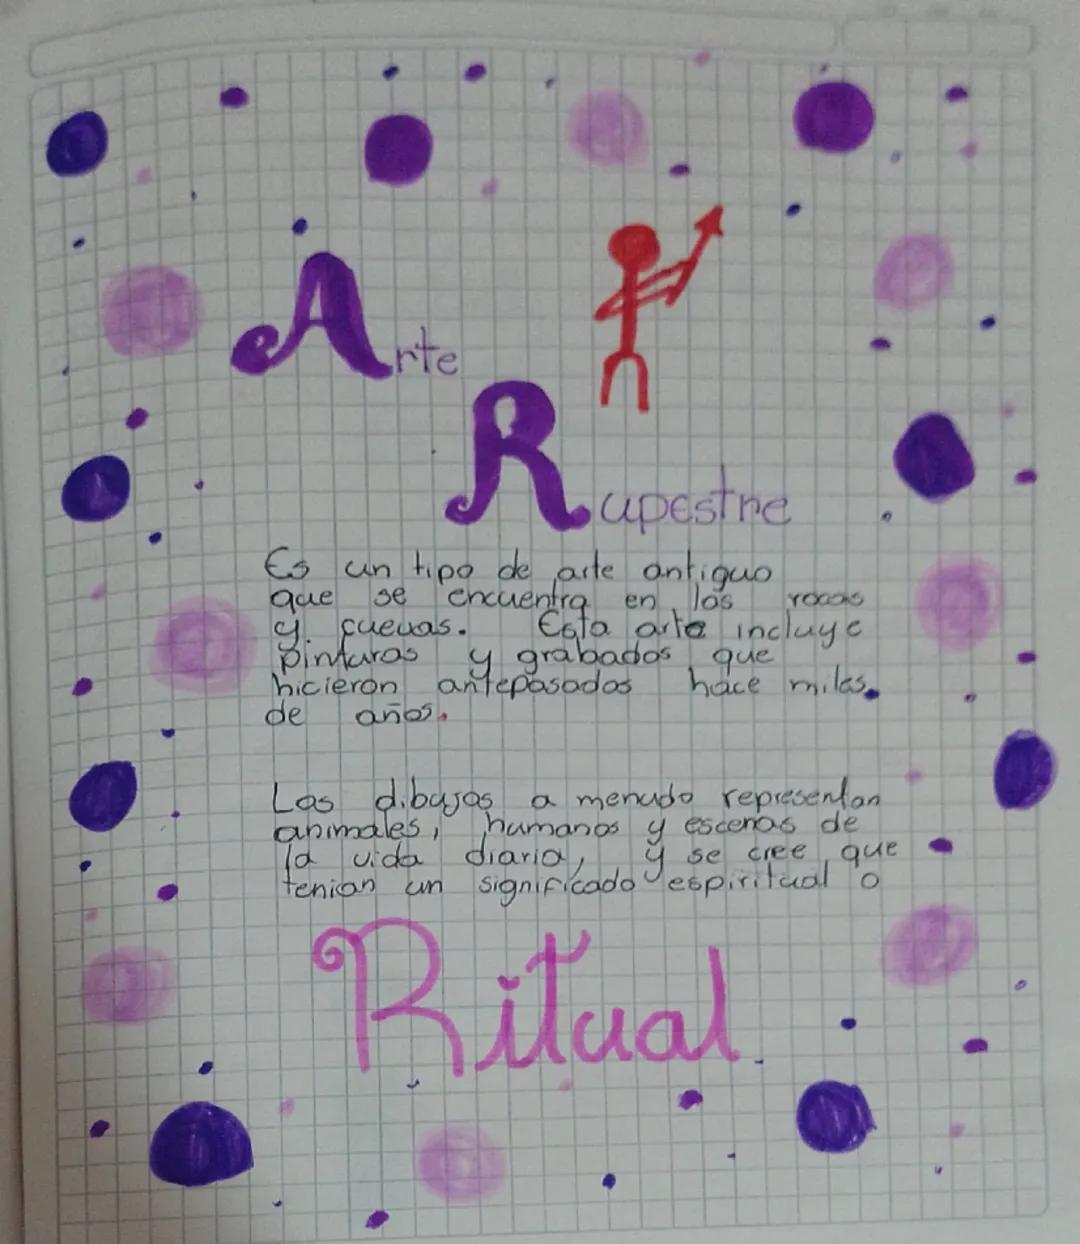 Arte
Rupestre
Es un tipo de arte antiguo
que se encuentra en las rocas
y cuevas. Esta arte incluye
pinturas y grabados que
hicieron antepasados hace miles
de años.
Las dibujos a menudo representan
animales, humanos y escenas de
la vida diaria, y se cree que
tenian un significado espiritual o
Ritual.